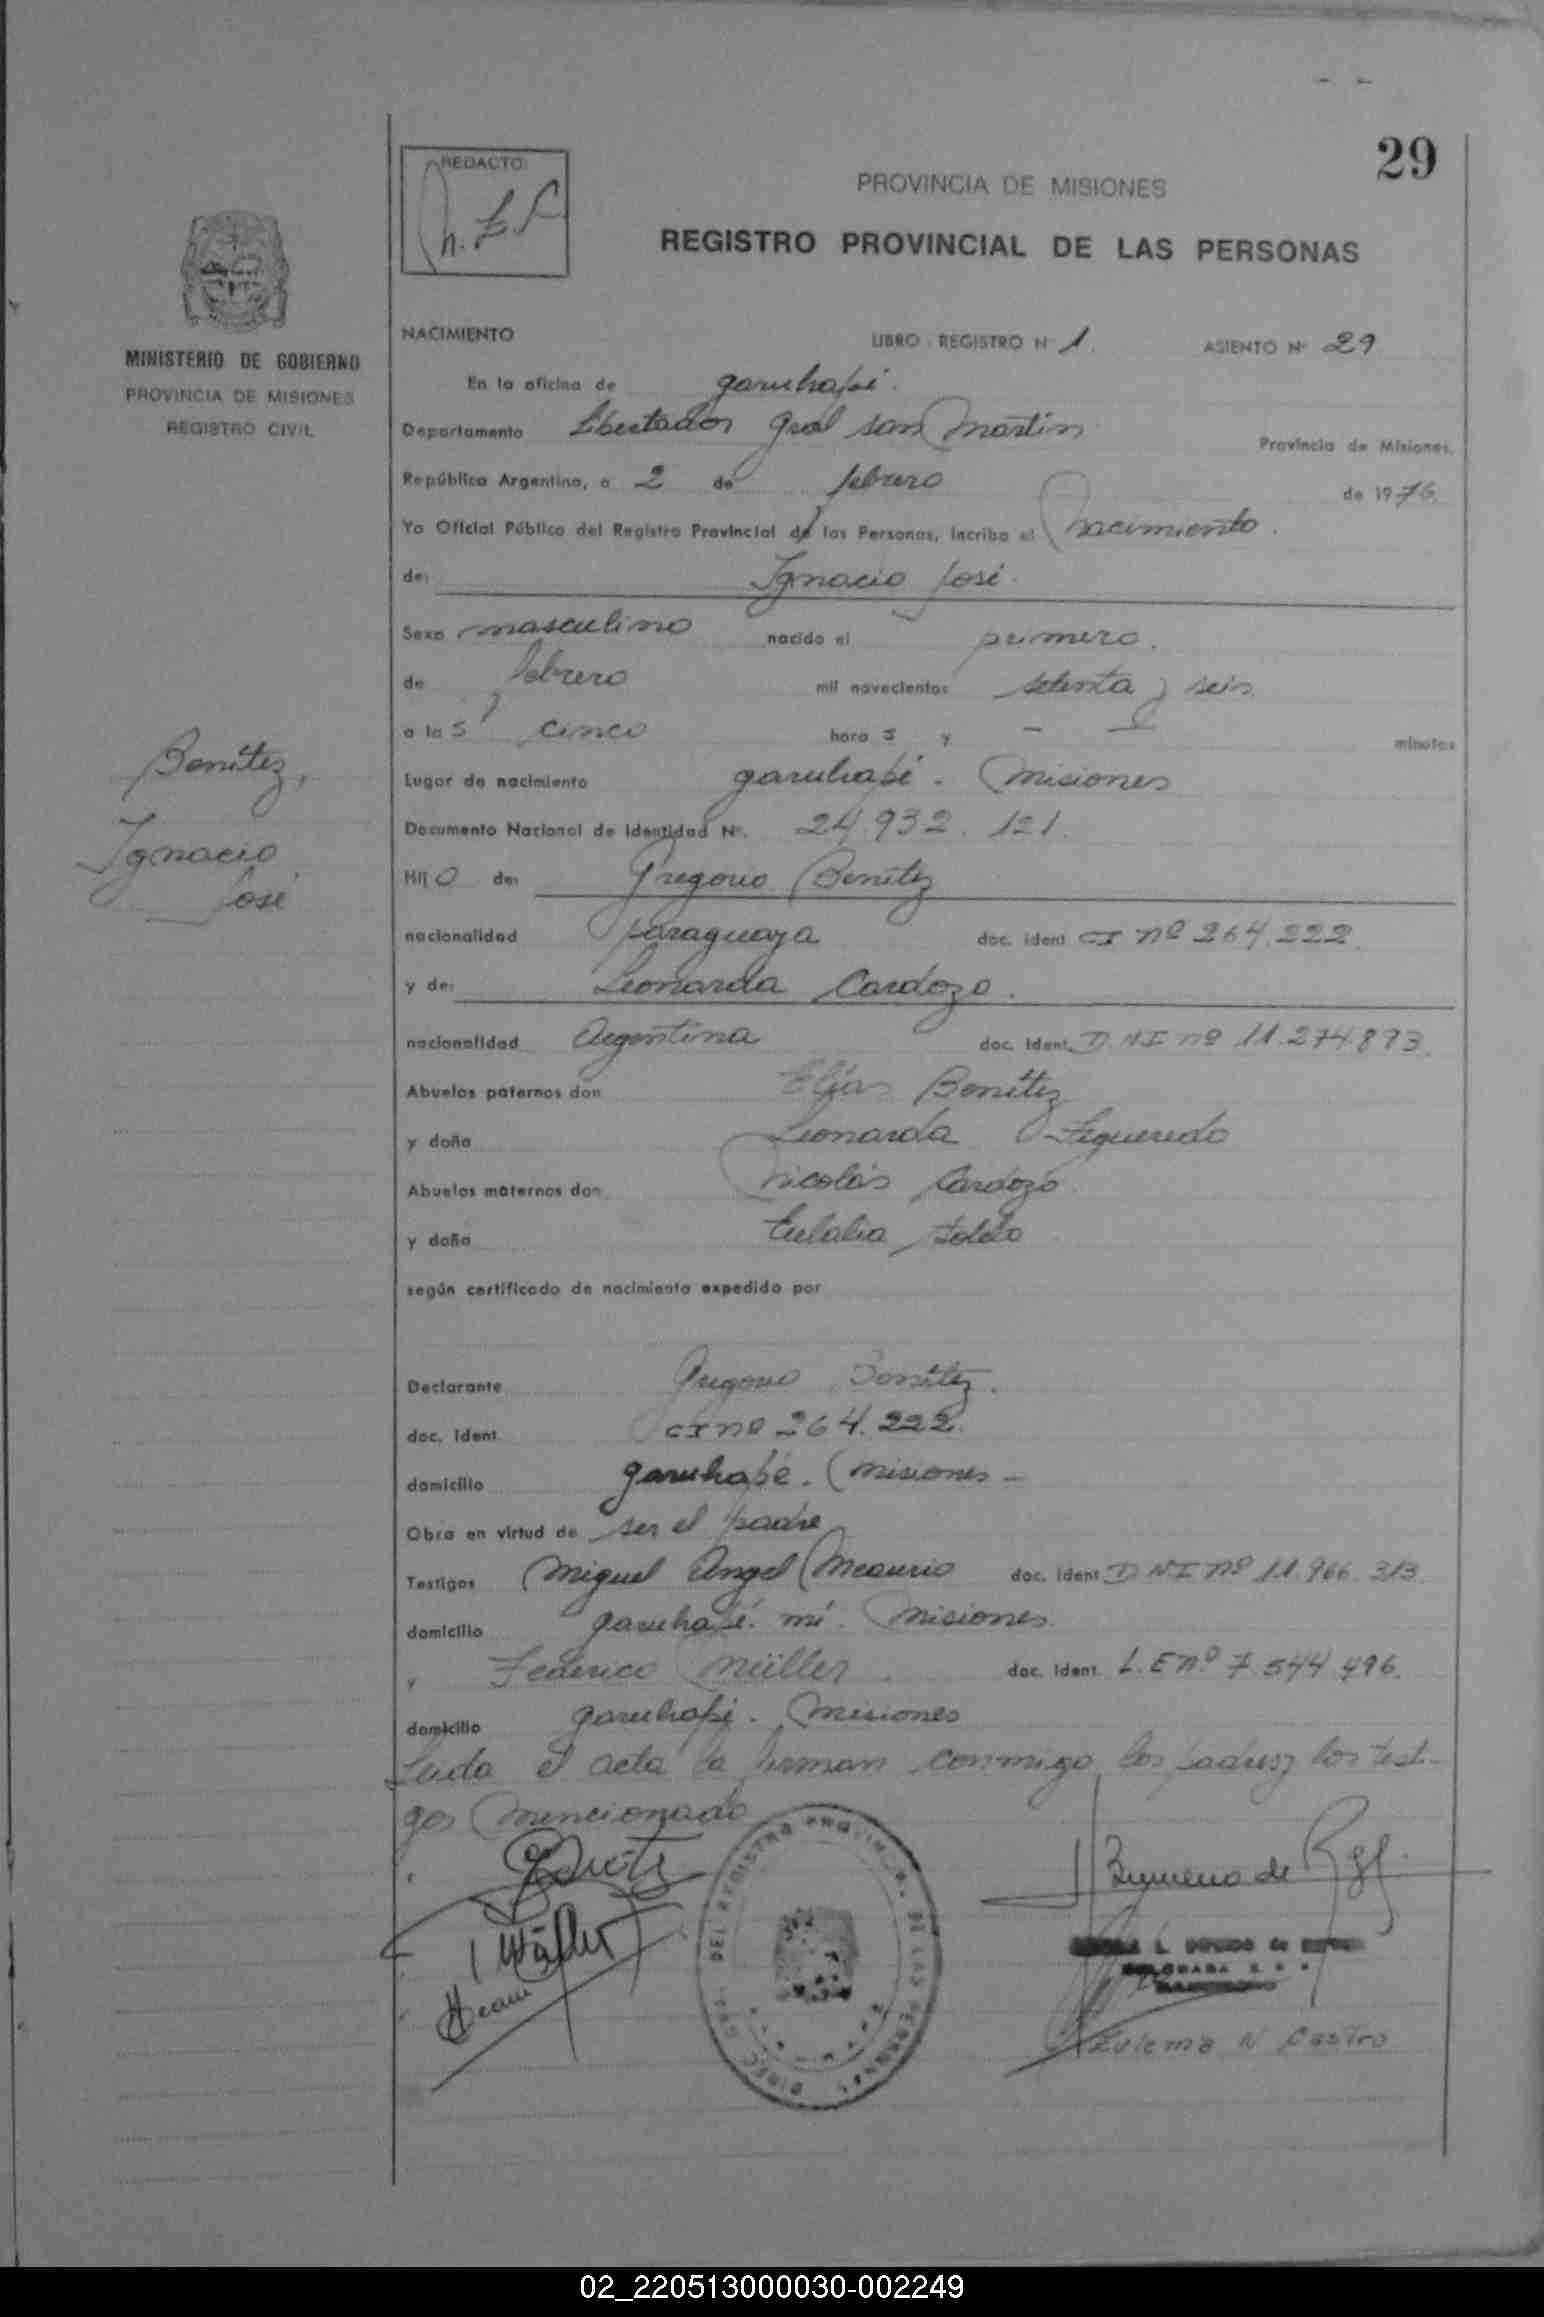 29
REDACTO
PROVINCIA DE MISIONES
REGISTRO PROVINCIAL DE LAS PERSONAS
MINISTERIO DE GOBIERNO
PROVINCIA DE MISIONES
REGISTRO CIVIL
NACIMIENTO LIBRO - REGISTRO Nº 1. ASIENTO Nº 29
En la oficina de garuhapé.
Departamento Libertador Gral san Martin Provincia de Misiones,
República Argentina, a 2 de febrero de 1976.
Yo Oficial Público del Registro Provincial de las Personas, incribo el Nacimiento.
de: Ignacio José.
Sexo masculino nacido el primero.
de febrero mil novecientos setenta y seis.
a las cinco horas y — — minutos
Benítez,
Ignacio
José
Lugar de nacimiento garuhapé. Misiones
Documento Nacional de Identidad Nº. 24.932.121.
Hijo de: Gregorio Benítez
nacionalidad paraguaya doc. ident CI nº 264.222.
y de: Leonarda Cardozo.
nacionalidad Argentina doc. ident. D.NI nº 11.274.893.
Abuelos paternos don Elías Benítez
y doña Leonarda Figueredo
Abuelos maternos don Nicolás Cardozo
y doña Eulalia Toledo
según certificado de nacimiento expedido por
Declarante Gregorio Benítez.
doc. ident. CI nº 264.222.
domicilio garuhapé. Misiones —
Obra en virtud de ser el padre
Testigos Miguel Angel Meaurio doc. ident D NI Nº 11.966.313.
domicilio garuhapé. mí. Misiones.
y Federico Müller. doc. ident. L.E nº 7.544.496.
domicilio garuhapé. Misiones
Leida el acta la firman conmigo los padres y los testi-
gos mencionado
DIREC. GRAL. DEL REGISTRO PROVINCIAL DE LAS PERSONAS
Zulema N Castro
02_220513000030-002249